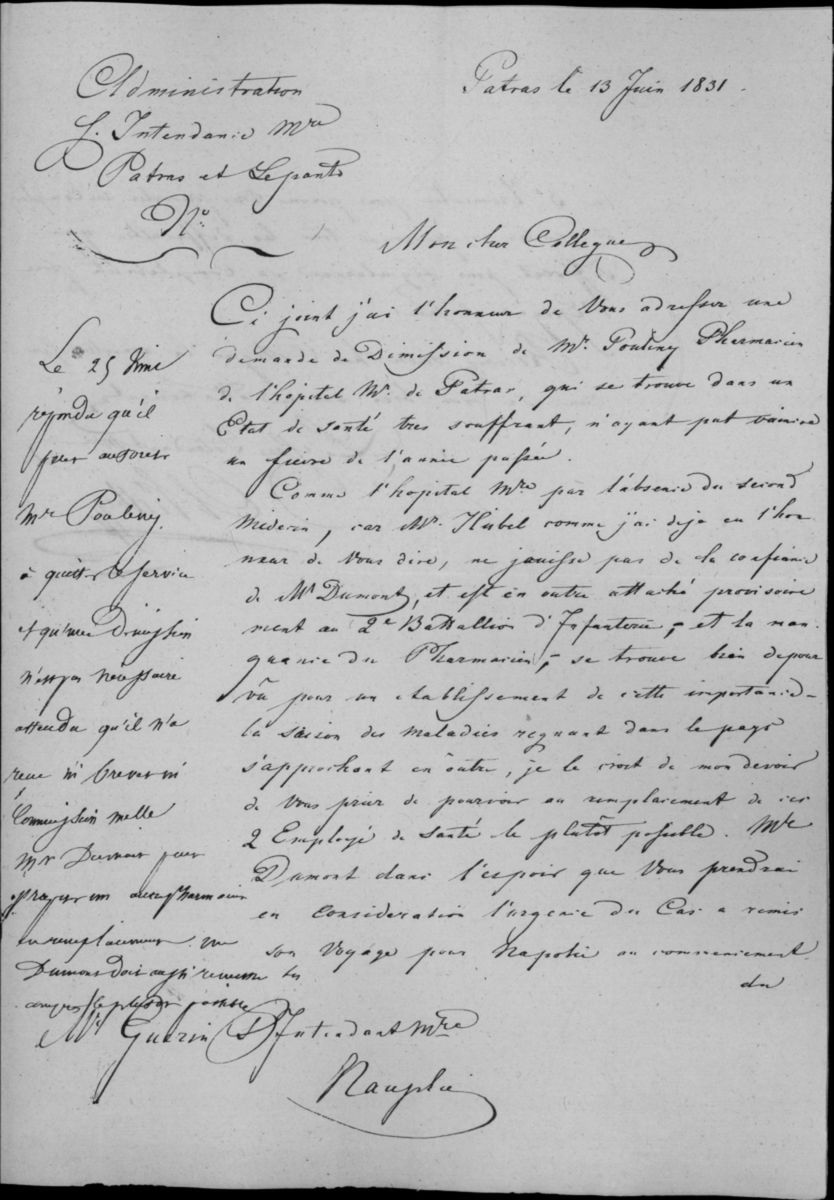 Administration
S. Intendance Mre
Patras et Lepante
No
Patras le 13 Juin 1831.
Mon cher Collegue
Ci joint j'ai l'honneur de Vous adresser une
demande de Dimission de Mr. Pouleny Pharmacien
de l'hôpital Mre de Patras, qui se trouve dans un
Etat de santé tres souffrant, n'ayant put vaincre
un fievre de l'année passée.
Comme l'hopital Mre par l'absence du second
Medecin, car Mr. Hubel comme j'ai deja eu l'hon
neur de Vous dire, ne jouisse pas de la confiance
de Mr Dumont, et est en outre attaché provisoire
ment au 2e Battallion d'Infanterie, et la man
quance du Pharmacien, se trouve bien depour
vû pour un etablissement de cette importance
la saison des maladies regnant dans le pays
s'approchant en outre, je le croit de mon devoir
de Vous prier de pourvoir au remplacement de ces
2 Employé de santé le plutôt possible. Mr
Dumont dans l'espoir que Vous prendrai
en consideration l'urgence du Cas a remis
son Voyage pour Napolie au commencement
du
Le 25 Juin
répondu qu'il
peut autoriser
Mr Pouleny
à quitter le service
et qu'une Dimission
n'est pas necessaire
attendu qu'il n'a
reçu ni brevet ni
Commission
Mr Dumont peut
un pharmacien
en remplacement. Mr
Dumont doit aussi remettre ses
comptes le plutôt possible
Mr Guerin S. Intendant Mre
Nauplie